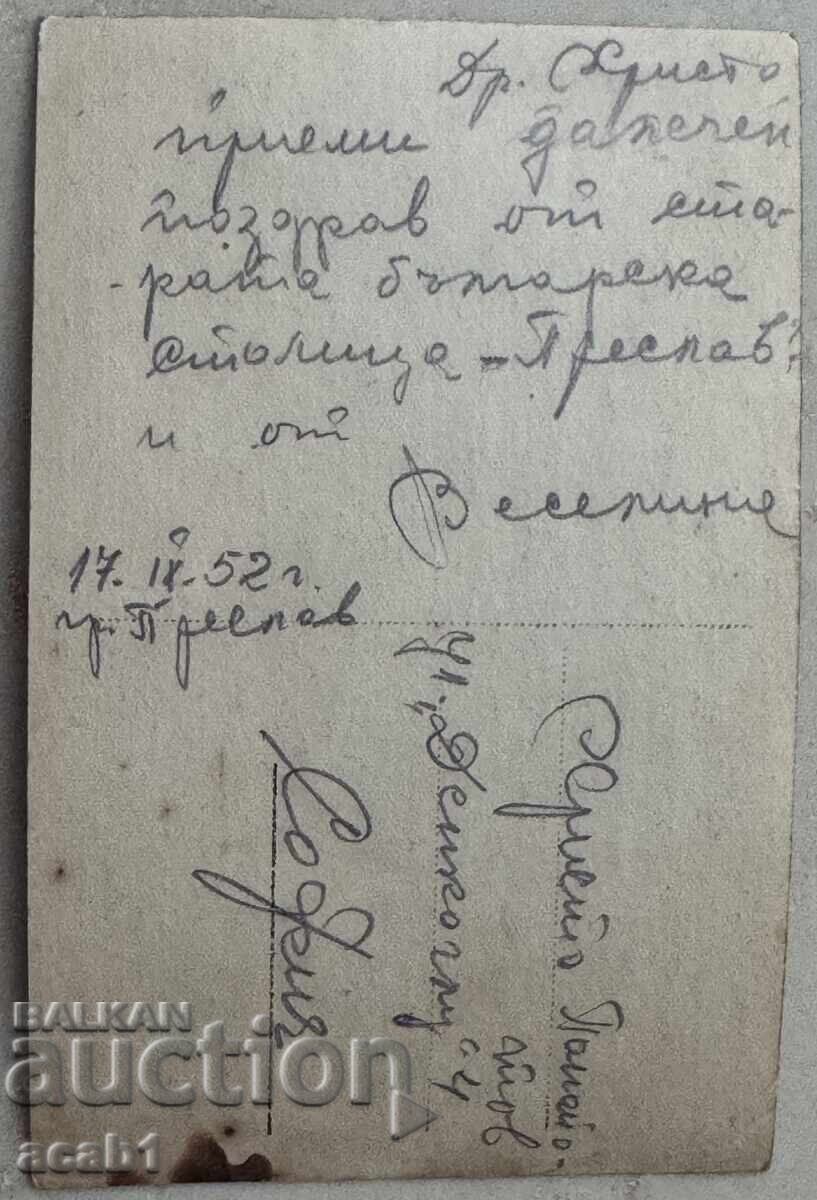 Др. Христо
приеми далечен
поздрав от ста-
рата българска
столица - Преслав"
и от
Веселина
17. IX. 52 г.
гр. Преслав
Христо Панайо-
тов
ул. "Денкоглу" 4
София
BALKAN
auction
acab1